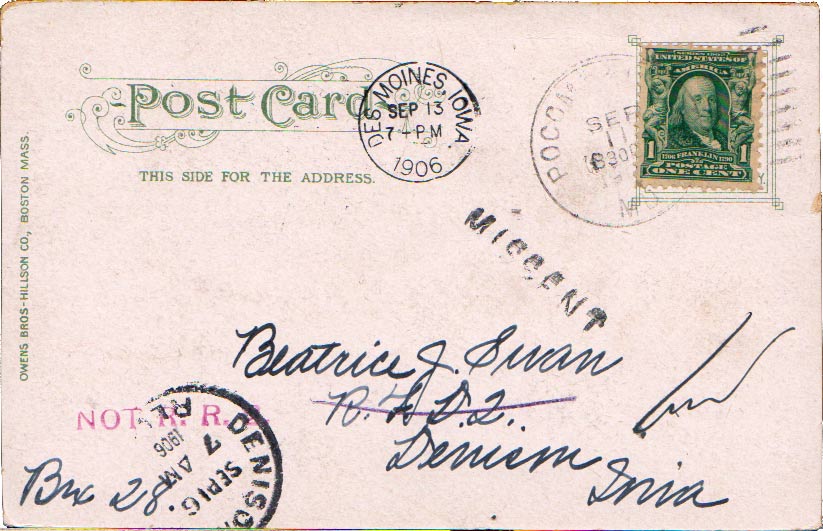 SERIES 1902
UNITED STATES OF
AMERICA
1706 FRANKLIN 1790
1 POSTAGE 1
ONE CENT
Post Card
THIS SIDE FOR THE ADDRESS.
OWENS BROS-HILLSON CO., BOSTON MASS.
DES MOINES, IOWA.
SEP 13
7-PM
1906
SEP
11
MO
MISSENT
Beatrice J. Swan
R.F.D.2.
Denison
Iowa
NOT R.R.
DENISON
SEP 16
7 AM
1906
Box 28.